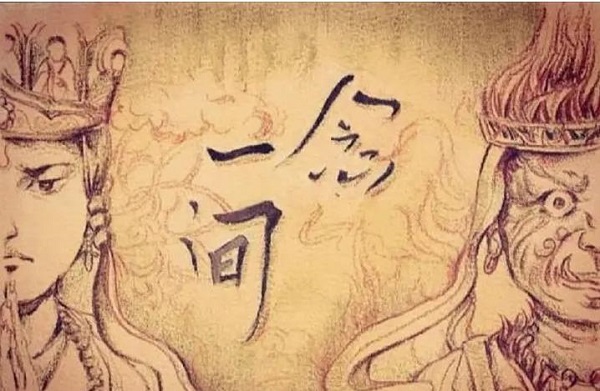 一念
间